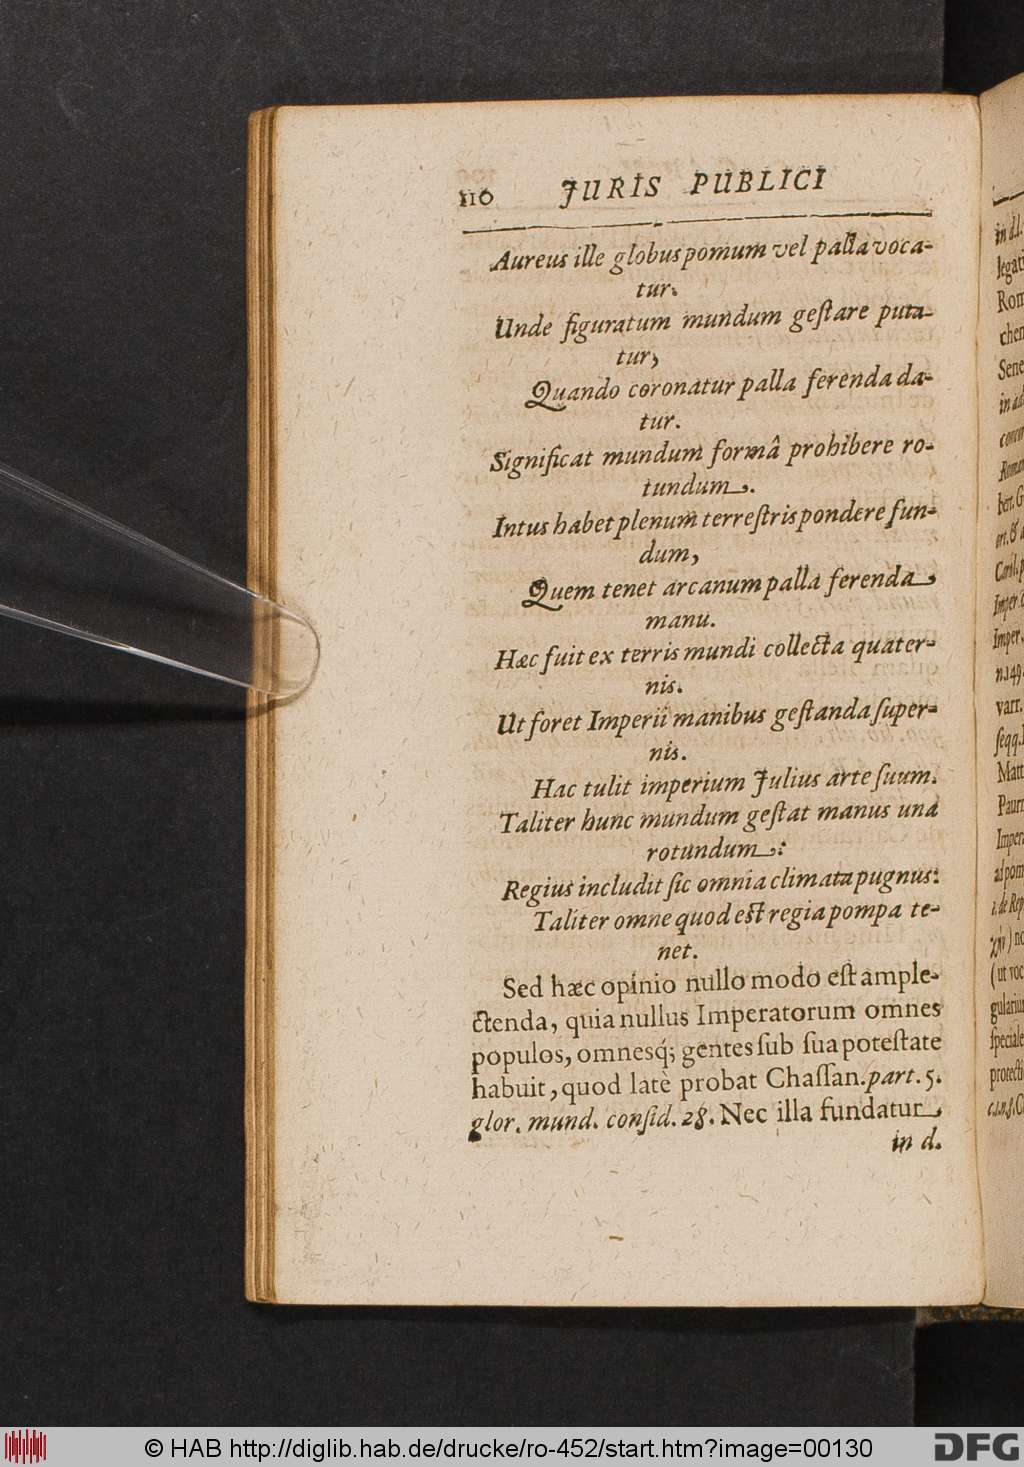 110 JURIS PUBLICI
Aureus ille globus pomum vel palla voca-
tur.
Unde figuratum mundum geſtare puta-
tur,
Quando coronatur palla ferenda da-
tur.
Significat mundum formâ prohibere ro-
tundum.
Intus habet plenum terreſtris pondere fun-
dum,
Quem tenet arcanum palla ferenda
manu.
Hæc fuit ex terris mundi collecta quater-
nis.
Ut foret Imperii manibus geſtanda ſuper-
nis.
Hac tulit imperium Julius arte ſuum.
Taliter hunc mundum geſtat manus una
rotundum:
Regius includit ſic omnia climata pugnus:
Taliter omne quod eſt regia pompa te-
net.
Sed hæc opinio nullo modo eſt ample-
ctenda, quia nullus Imperatorum omnes
populos, omnesq́; gentes ſub ſua poteſtate
habuit, quod latè probat Chaſſan. part. 5.
glor. mund. conſid. 28. Nec illa fundatur
in d.
in d.l.
legati
Rom
chen
Sene
in ad
Roman
bert. G
Carol. p
Imper. C
Imper.
n.149.
varr.
ſeqq.
Matt
Paurn
Impera
ad pom
i. de Rep
χήν) no
(ut voc
gularium
ſpeciale
protecti
© HAB http://diglib.hab.de/drucke/ro-452/start.htm?image=00130
DFG